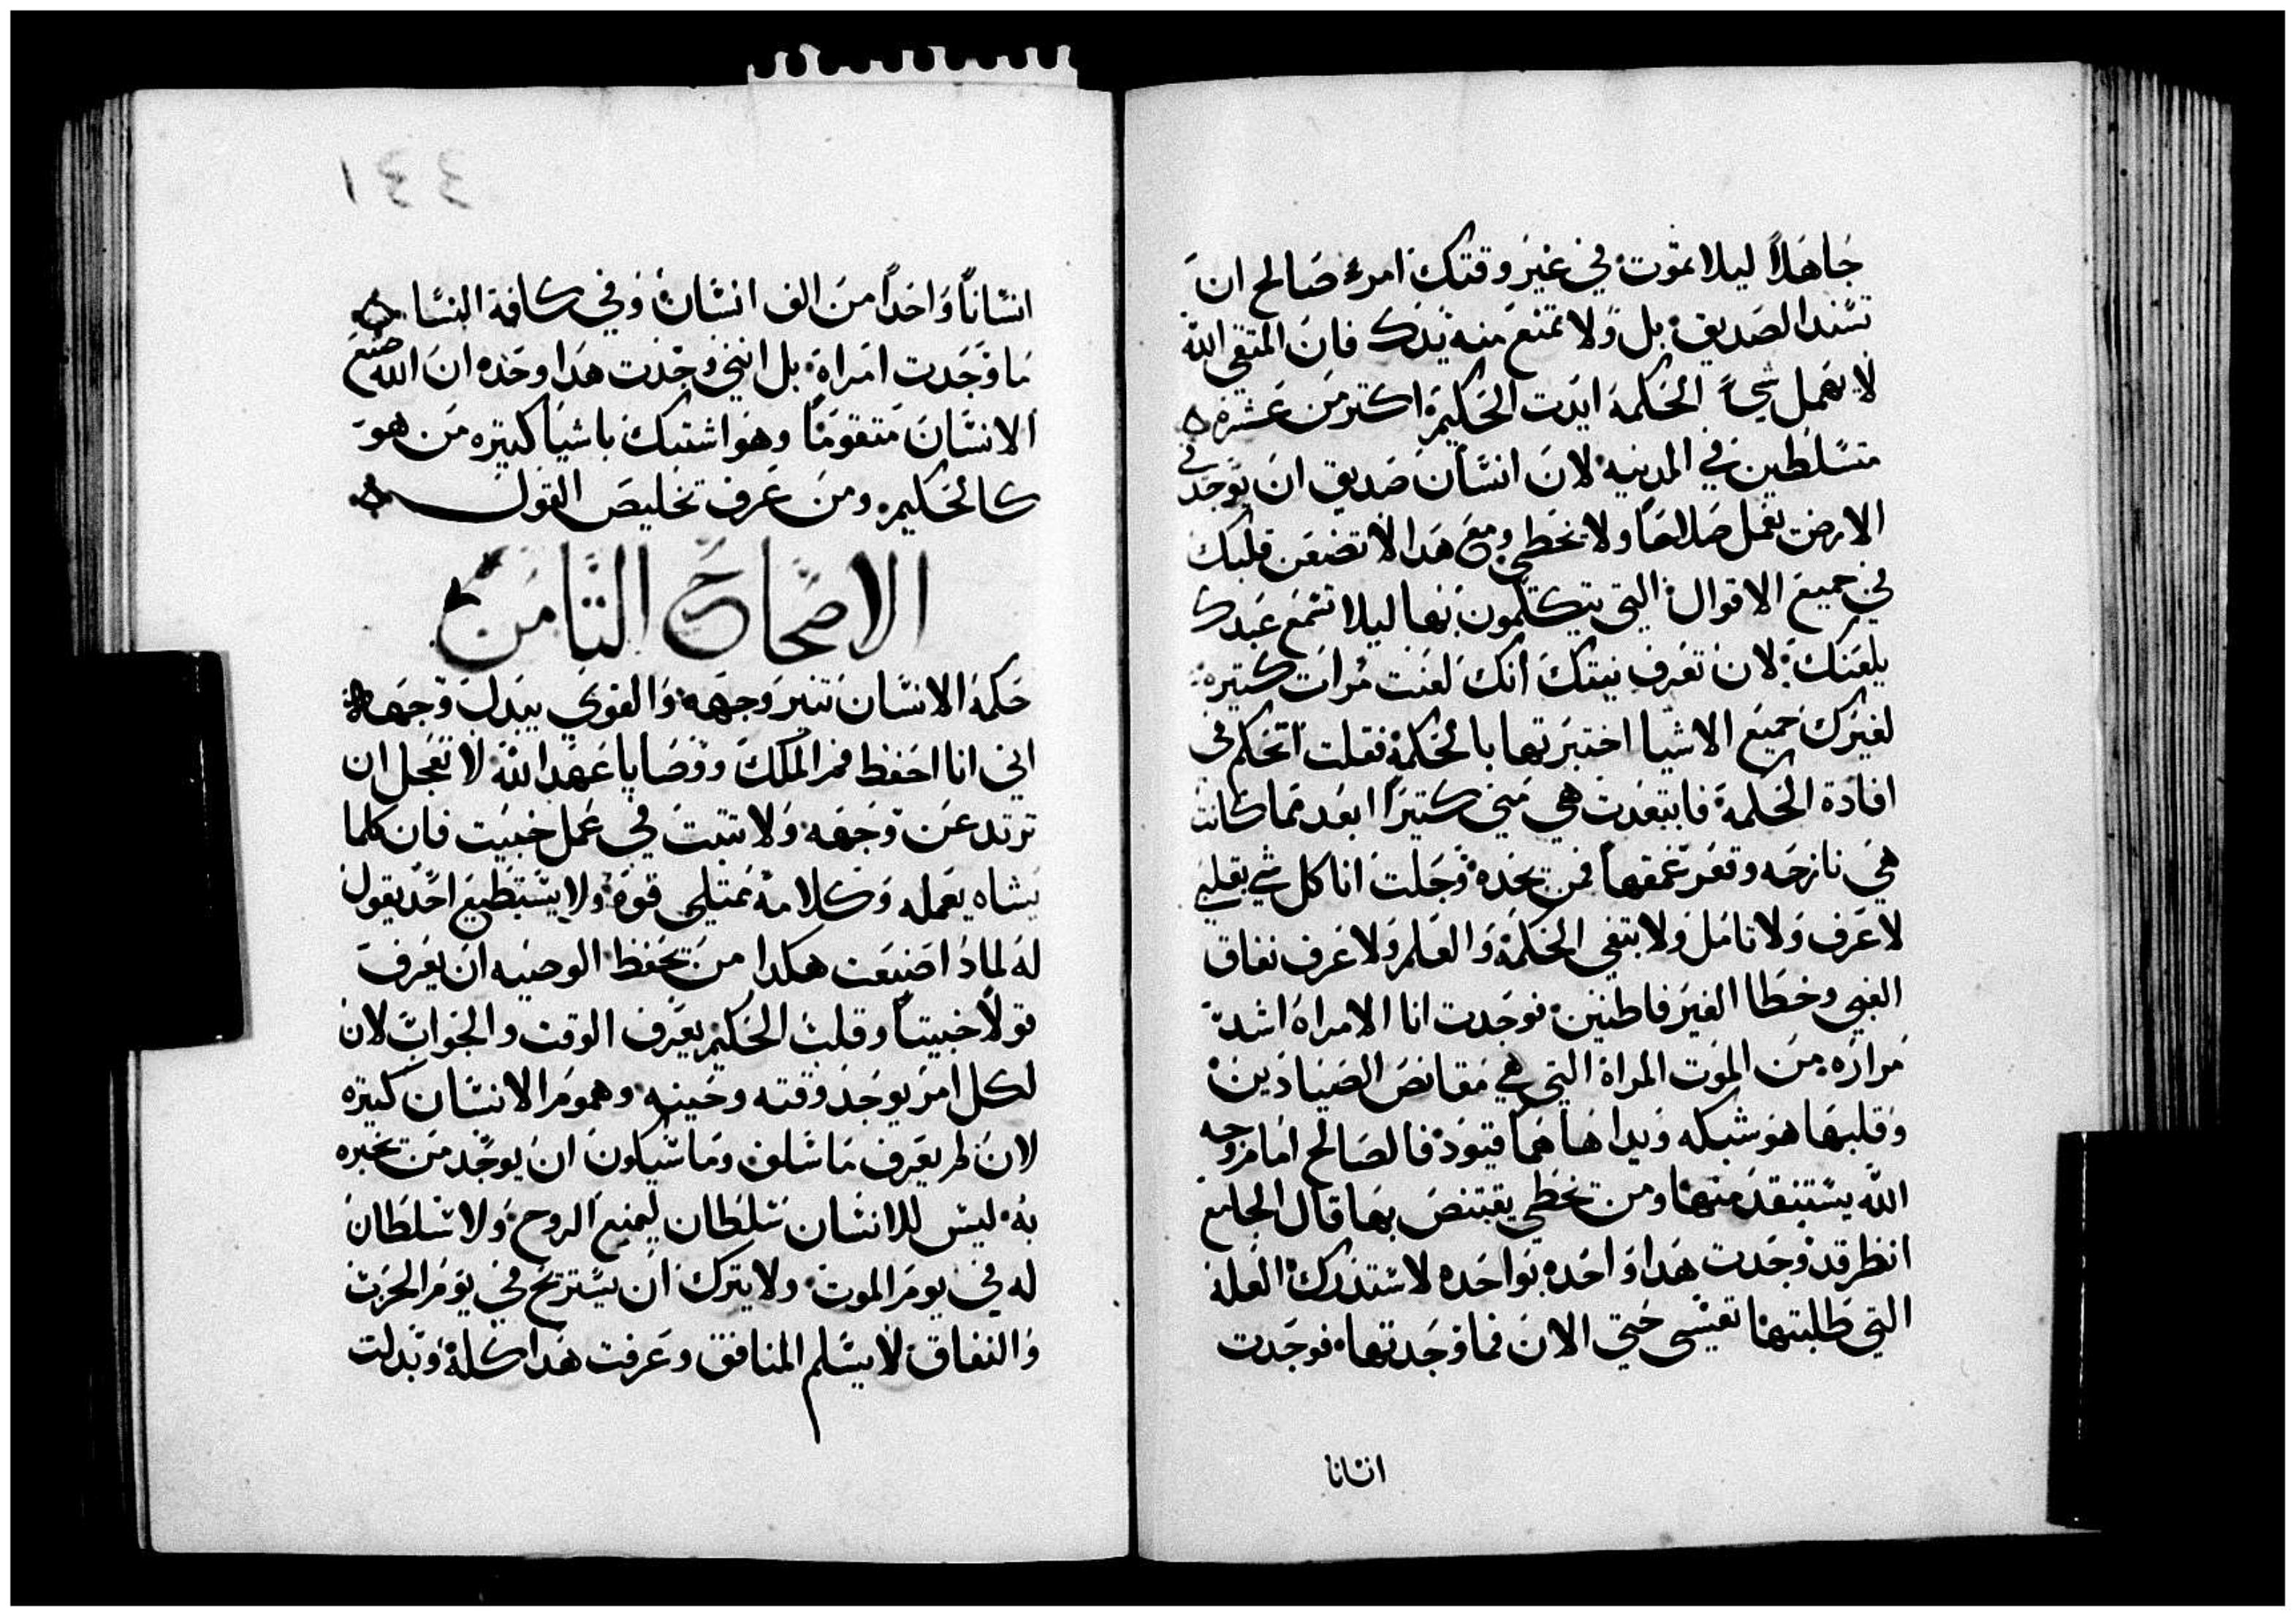 جاهلاً ليلا تموت في غير وقتك امرء صالح ان
تسند الصديق بل ولا تمنع منه يدك فان المتقي الله
لا يهمل شيء الحكمة ايدت الحكيم اكتر من عشرة
متسلطين في المدينه لان انسان صديق ان يوجد في
الارض يعمل صلاحا ولا يخطي ومع هدا لا تضعن قلبك
في جميع الاقوال التي يتكلمون بها ليلا تسمع عبدك
يلعنك لان تعرف نيتك انك لعنت مرات كتيره
لغيرك جميع الاشيا اختبرتها بالحكمة فقلت اتحكم في
افادة الحكمة فابتعدت هي مني كتيرا ابعد مما كانت
هي نازحه وقعر عمقها فمن يجده وجلت انا كل شي بقلبي
لاعرف ولاتامل ولابتغي الحكمة والعلم ولاعرف نفاق
الغبي وخطا الغير فاطنين فوجدت انا الامراه اشد
مراره من الموت المراة التي هي مقانص الصيادين
وقلبها هو شبكه ويداها هما قيود فالصالح امام وجه
الله يستنقد منها ومن يخطي يقتنص بها قال الجامع
انظر قد وجدت هدا واحده بواحده لاستدرك العلة
التي طلبتها نفسي حتي الان فما وجدتها فوجدت
انسانا
٤٤١
انساناً واحداً من الف انسان وفي كافة النسا
ما وجدت امراة بل انني وجدت هدا وحده ان الله صنع
الانسان متقوما وهو اشتبك باشيا كتيره من هو
كالحكيم ومن عرف تخليص القول
الاصحاح التامن
حكمة الانسان تنير وجهه والقوي يبدل وجهه
اني انا احفظ فم الملك ووصايا عهد الله لا تعجل ان
ترتد عن وجهه ولا تتبت في عمل خبيت فان كلما
يشاه يعمله وكلامه ممتلي قوة ولا يستطيع احد يقول
له لمادا صنعت هكدا من يحفظ الوصيه ان يعرف
قولاً خبيتاً وقلب الحكيم يعرف الوقت والجواب لان
لكل امر يوجد وقته وحينه وهموم الانسان كتيره
لان لم يعرف ما سلف وما سيكون ان يوجد من يخبره
به ليس للانسان سلطان ليمنع الروح ولا سلطان
له في يوم الموت ولا يترك ان يستريح في يوم الحرب
والنفاق لا يسلم المنافق وعرفت هدا كله وبدلت